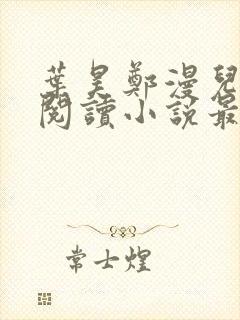 葉昊鄭漫兒
閱讀小說最
常士煌